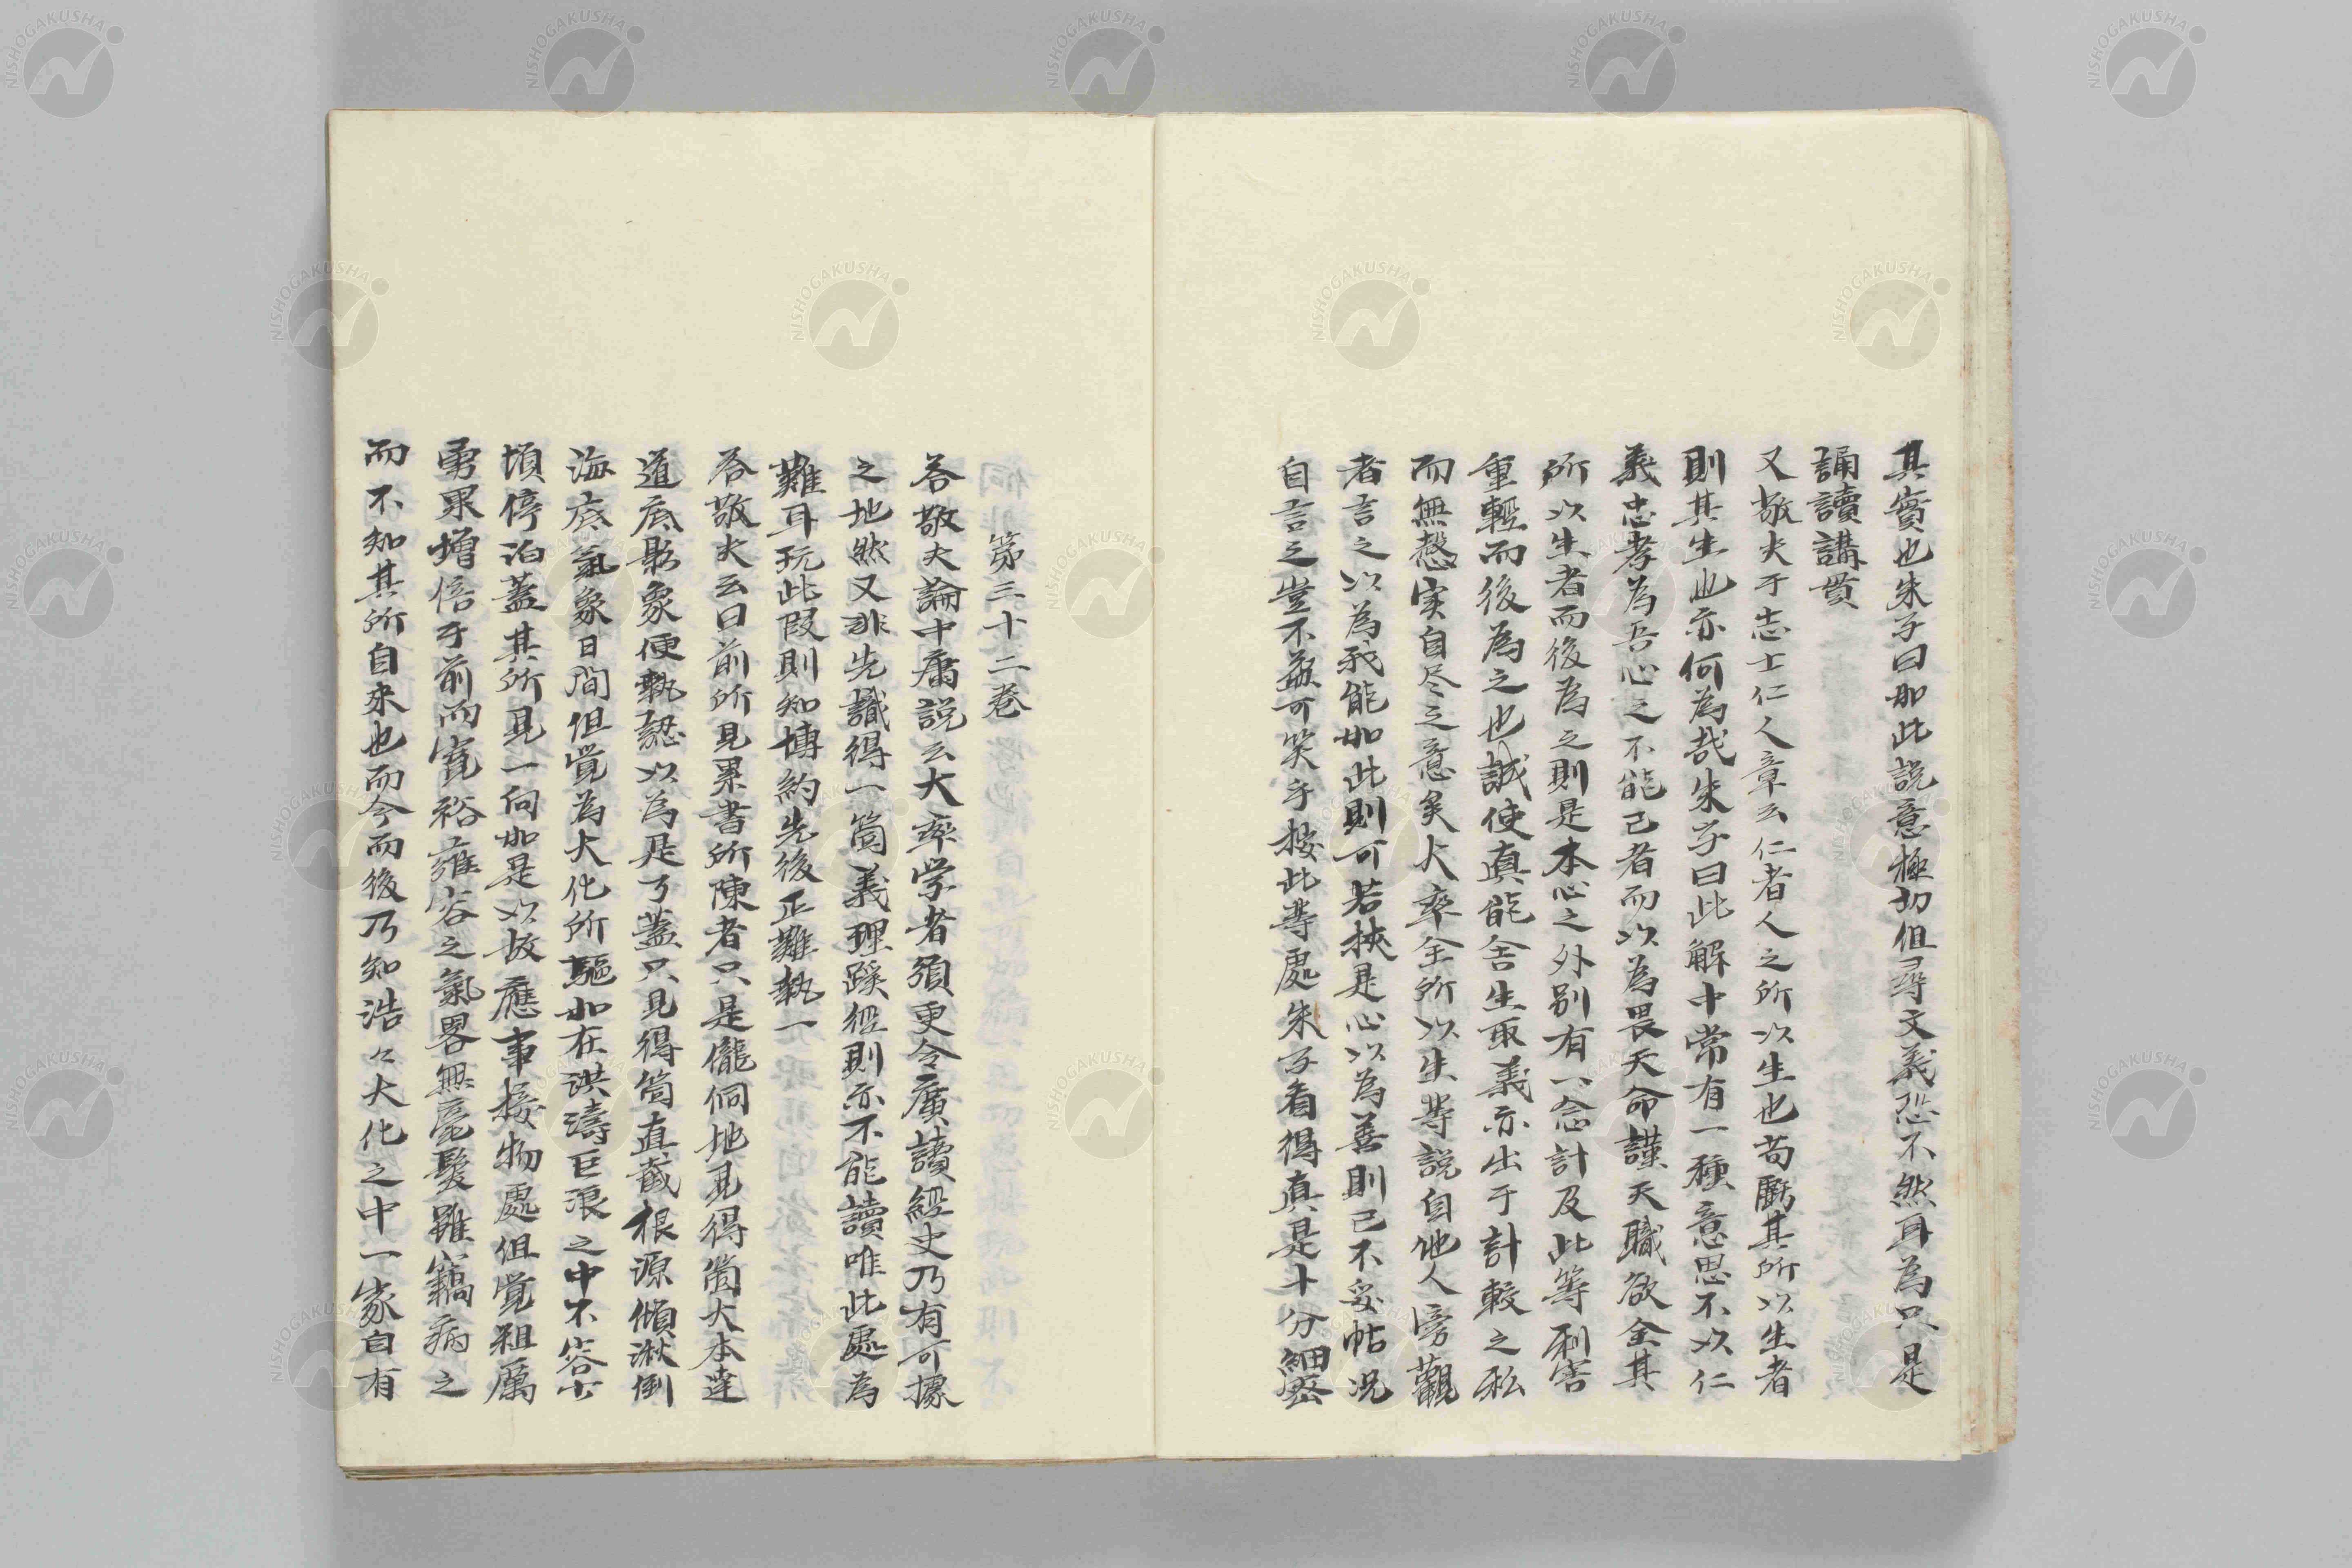 其實也朱子曰如此説意極切但尋文義恐不然耳為只是
誦讀講貫
又敬夫于志士仁人章云仁者人之所以生也苟虧其所以生者
則其生也亦何為哉朱子曰此解中常有一種意思不以仁
義忠孝為吾心之不能已者而以為畏天命謹天職欲全其
所以生者而後為之則是本心之外別有一念計及此等利害
重輕而後為之也誠使真能舍生取義亦出于計較之私
而無慤实自尽之意矣大率全所以生等説自他人傍觀
者言之以為我能如此則可若挾是心以為善則已不妥帖况
自言之豈不益可笑乎按此等處朱子看得真是十分細密
第三十二卷
答敬夫論中庸説云大率学者須更令廣讀經史乃有可據
之地然又非先識得一箇義理蹊徑則亦不能讀唯此處為
難耳玩此段則知博約先後正難執一
答敬夫云曰前所見累書所陳者只是儱侗地見得箇大本達
道底影象便執認以為是了蓋只見得箇直截根源傾湫倒
海底氣象日間但覚為大化所驅如在洪濤巨浪之中不容少
頃停泊蓋其所見一向如是以故應事接物處但覚粗厲
勇果增倍于前而寛裕雍容之氣畧無毫髮雖竊病之
而不知其所自来也而今而後乃知浩々大化之中一家自有
NISHOGAKUSHA